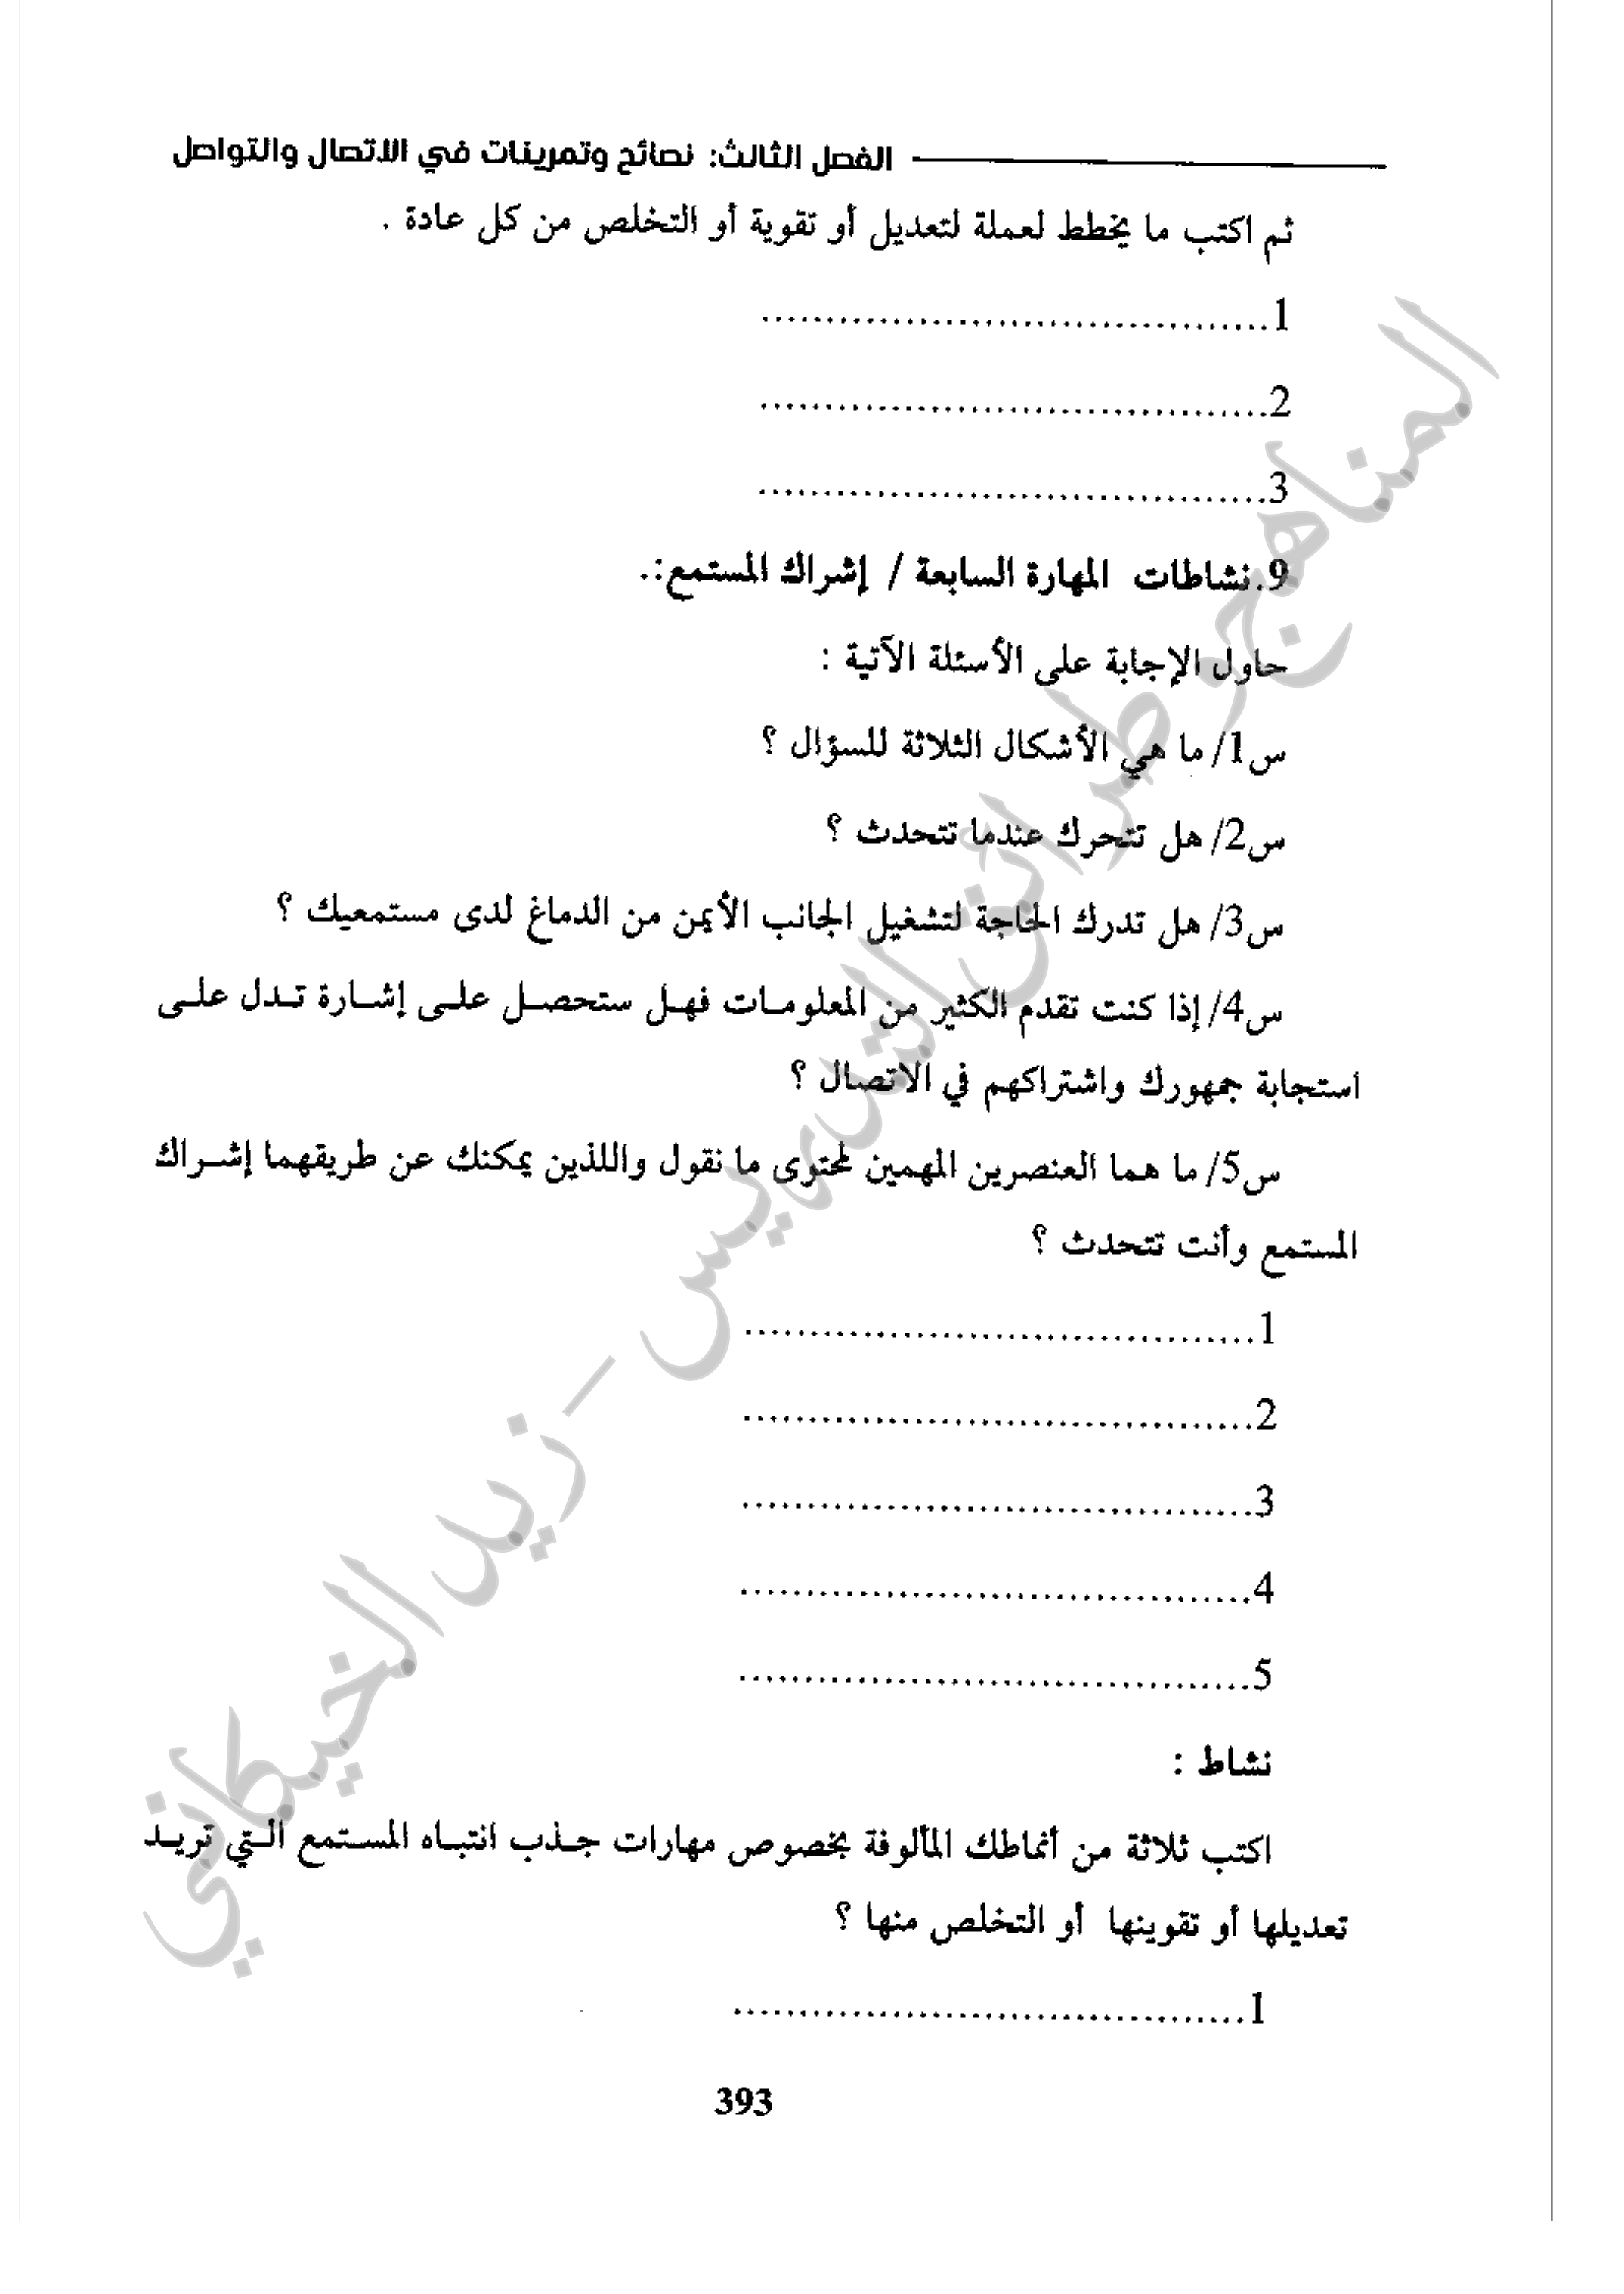 الفصل الثالث: نصائح وتمرينات في الاتصال والتواصل
ثم اكتب ما يخطط لعملة لتعديل أو تقوية أو التخلص من كل عادة .
1.......................................
2.......................................
3.......................................
9.نشاطات المهارة السابعة / إشراك المستمع:.
حاول الإجابة على الأسئلة الآتية :
س1/ ما هي الأشكال الثلاثة للسؤال ؟
س2/ هل تتحرك عندما تتحدث ؟
س3/ هل تدرك الحاجة لتشغيل الجانب الأيمن من الدماغ لدى مستمعيك ؟
س4/ إذا كنت تقدم الكثير من المعلومات فهل ستحصل على إشارة تدل على
استجابة جمهورك واشتراكهم في الاتصال ؟
س5/ ما هما العنصرين المهمين لمحتوى ما نقول واللذين يمكنك عن طريقهما إشراك
المستمع وأنت تتحدث ؟
1.......................................
2.......................................
3.......................................
4.......................................
5.......................................
نشاط :
اكتب ثلاثة من أنماطك المألوفة بخصوص مهارات جذب انتباه المستمع التي تريد
تعديلها أو تقوينها أو التخلص منها ؟
1.......................................
393
المناهج وطرائق التدريس - زيد الخيكاني